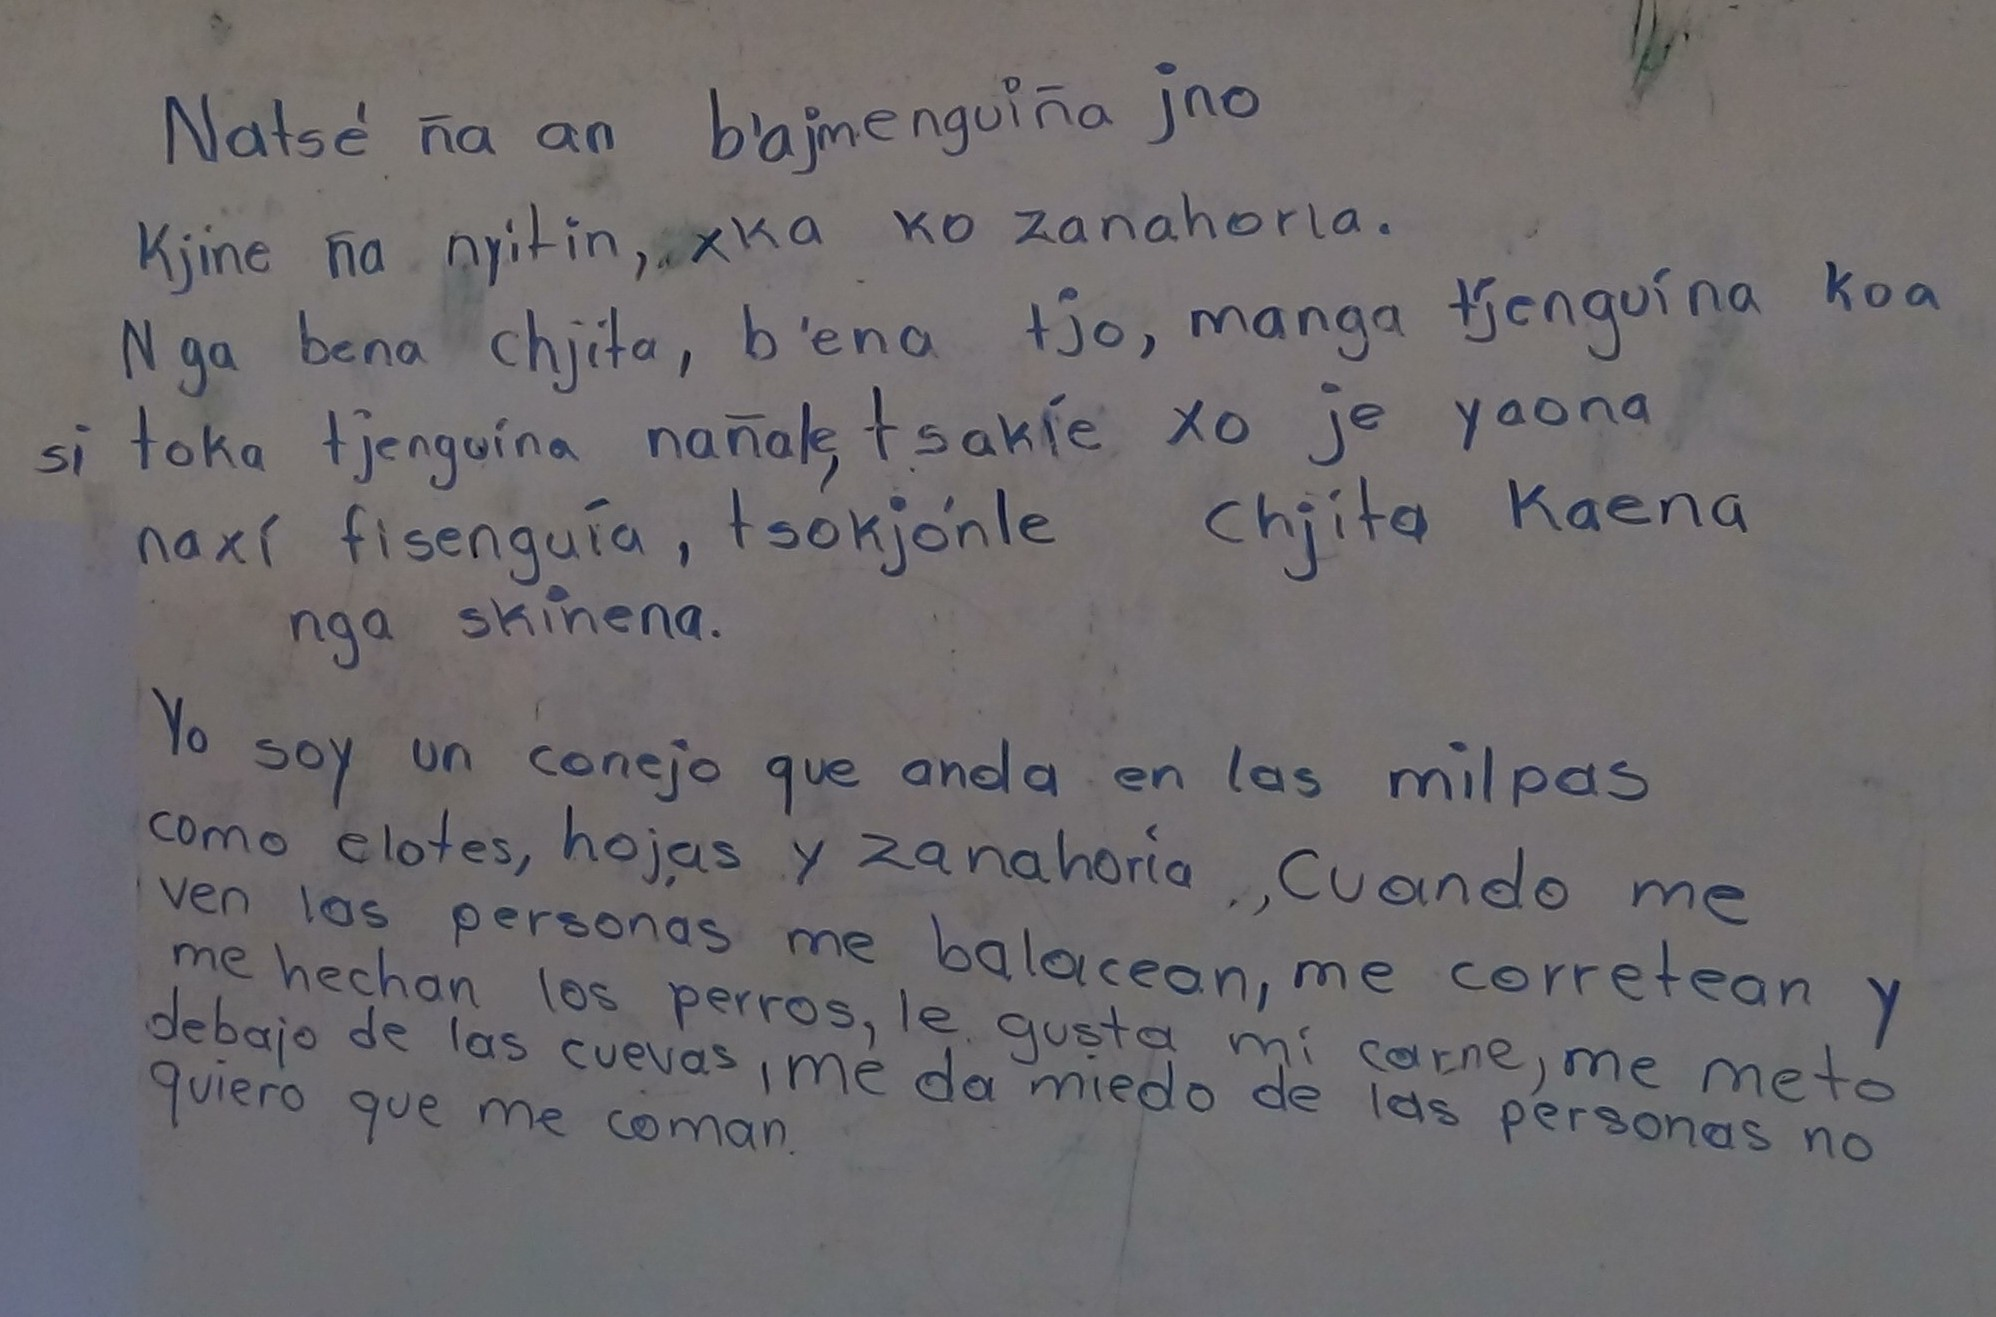 Natsé ña an b'ajmenguiña jno
Kjine ña nyitin, xka ko zanahoria.
Nga bena chjita, b'ena tjo, manga tjenguína koa
si toka tjenguína nañale, tsakíe xo je yaona
naxí fisenguía, tsókjónle chjita kaena
nga skinena.
Yo soy un conejo que anda en las milpas
como elotes, hojas y zanahoría., Cuando me
ven las personas me balacean, me corretean y
me hechan los perros, le gusta mi carne, me meto
debajo de las cuevas, me da miedo de las personas no
quiero que me coman.